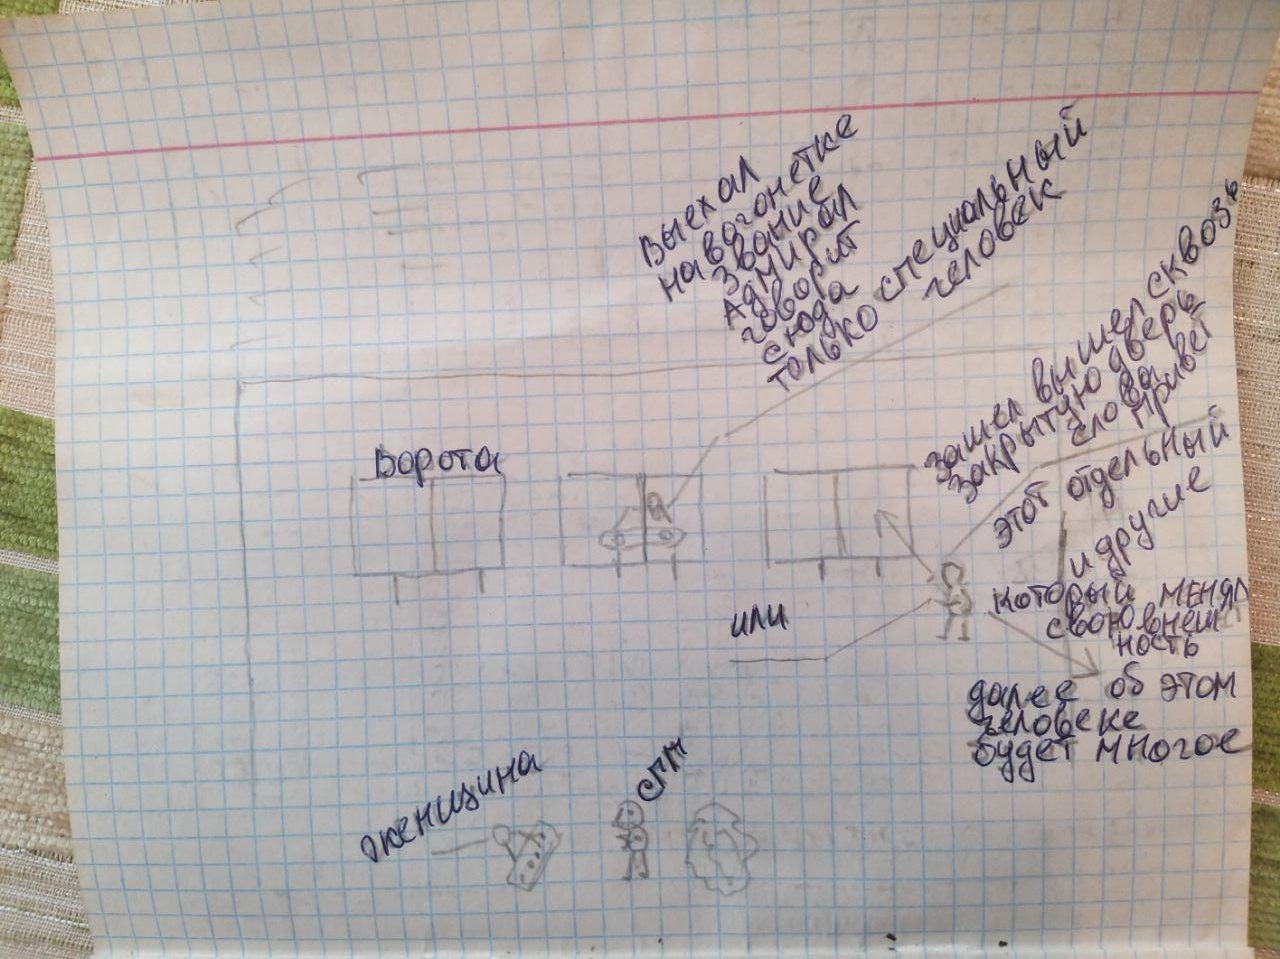 Выехал
на вагонетке
звание
Адмирал
говорит
сюда
только специальный
человек
зашел вышел сквозь
закрытую дверь
слова
привет
этот отдельный
и другие
который менял
свою внеш
ность
далее об этом
человеке
будет многое
Ворота
или
женщина